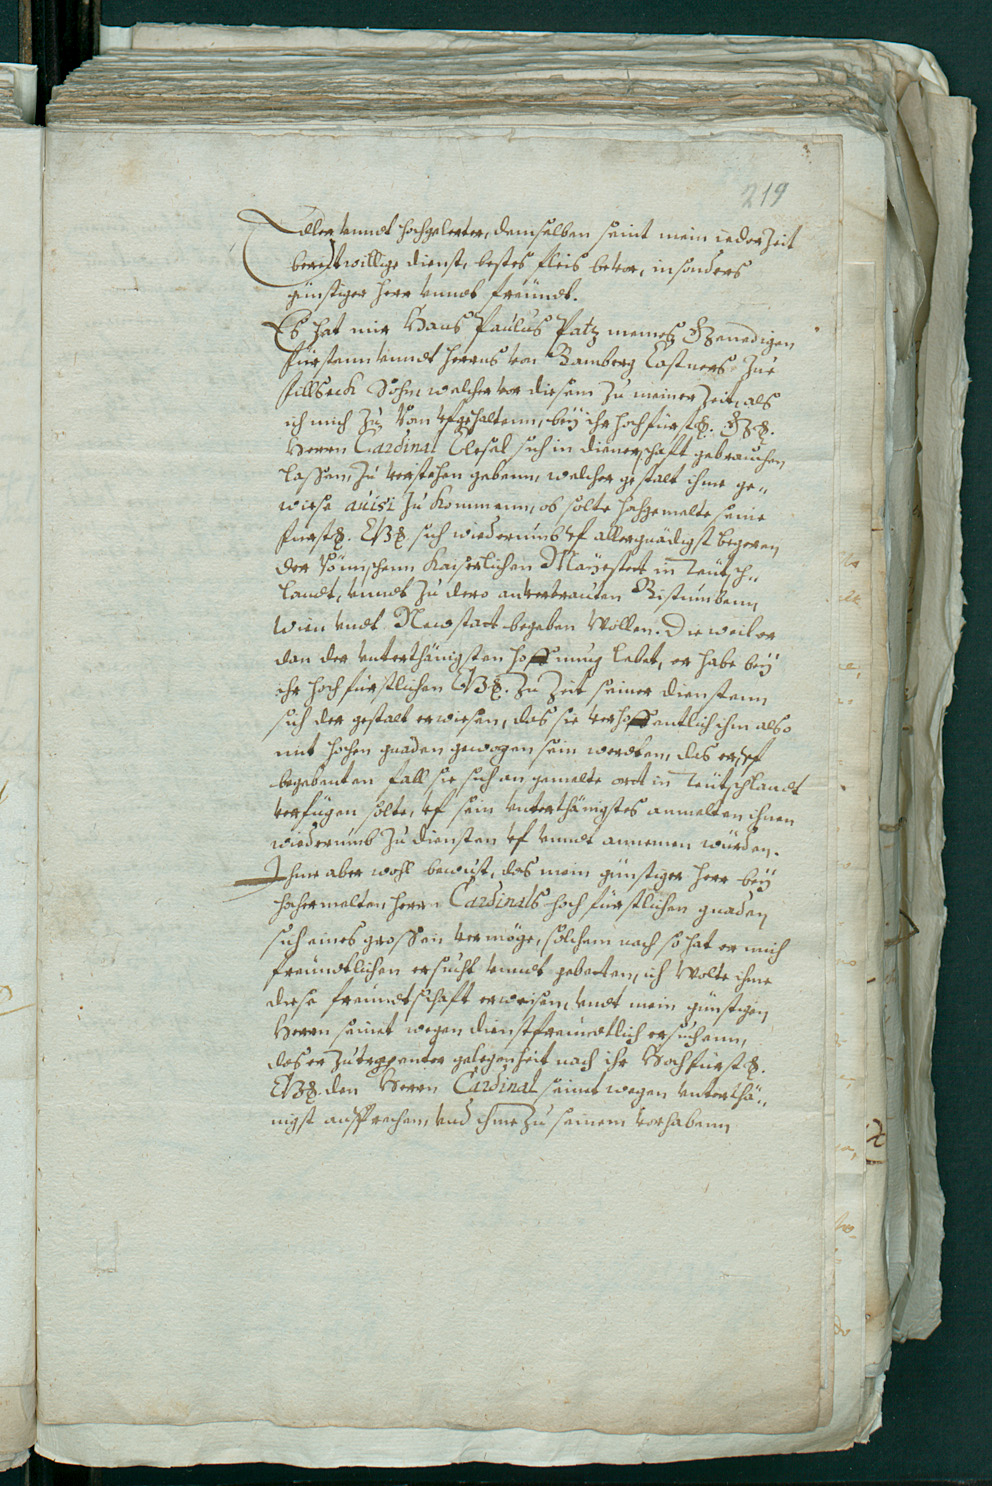 219
Edler vnndt hochgelerter, demselben seint mein iederZeit
bereitwillige dienst, bestes fleis bevor, insonders
günstiger herr vnndt freündt.
Es hat mir Hans Paulus Patz meines Genedigen
fürstenn vnndt herrns von Bamberg Castners Zue
fillseck Sohn, welcher vor diesem Zu meiner Zeit, als
ich mich Zu Rom vfgehaltenn, beÿ ihr hochfürstl. G
Herrn Cardinal Clesel sich in dienerschaft gebrauchen
lassen, Zu verstehen gebenn, welcher gestalt ihme ge-
wiese auisi Zu kommenn, ob solte hochgemelte seine
fürstl. Gd. sich wiederumb vf allergnädigst begeren
der Römischenn Kaiserlichen Mayestett in Teütsch-
landt, vnndt Zu dero anvertrauten Bistumbenn
Wien vndt Newstatt begeben wollen. Die weil er
dan der vnterthänigsten hoffnung lebet, er habe beÿ
ihr hochfürstlichen Gd. Zu Zeit seiner dienstenn
sich der gestalt erwiesen, das sie verhoffentlich ihm also
mit hohen gnaden gewogen sein werden, das er vf
begebenten fall, sie sich an gemelte ort in Teütschlandt
verfügen solte, vf sein vnterthänigstes anmelten ihnen
wiederumb Zu diensten vf vnndt annemen würden.
Ihme aber wohl bewust, das mein günstiger herr beÿ
hochermelten herrn Cardinals hochfürstlichen gnaden
sich eines grossen vermöge, solchem nach so hat er mich
freündtlichen ersucht vnndt gebetten, ich wolte ihme
diese freündtschaft erweisen, vndt mein günstigen
Herrn seinet wegen dienstfreündtlich ersuchenn,
das er Zutragenter gelegenheit nach ihr Hochfürstl.
Gd. den Herrn Cardinal seinet wegen vnterthä-
nigst ansprechen, vnd ihme Zu seinem vorhabenn